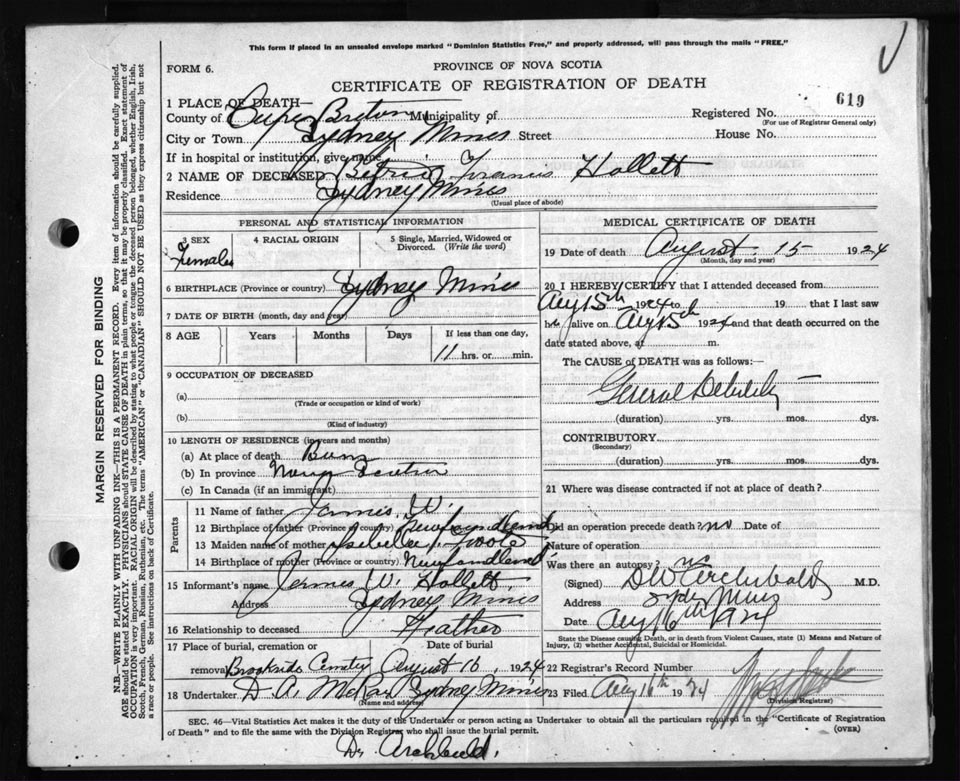 This form if placed in an unsealed envelope marked "Dominion Statistics Free," and properly addressed, will pass through the mails "FREE."
FORM 6.
PROVINCE OF NOVA SCOTIA
CERTIFICATE OF REGISTRATION OF DEATH
619
1 PLACE OF DEATH—
County of Cape Breton Municipality of
Registered No.
(For use of Registrar General only)
City or Town Sydney Mines Street House No.
If in hospital or institution, give name
2 NAME OF DECEASED Francis Hallett
Residence Sydney Mines
(Usual place of abode)
PERSONAL AND STATISTICAL INFORMATION
3 SEX Female
4 RACIAL ORIGIN
5 Single, Married, Widowed or Divorced. (Write the word)
6 BIRTHPLACE (Province or country) Sydney Mines
7 DATE OF BIRTH (month, day and year)
8 AGE Years Months Days If less than one day,
11 hrs. or min.
9 OCCUPATION OF DECEASED
(a)
(Trade or occupation or kind of work)
(b)
(Kind of industry)
10 LENGTH OF RESIDENCE (in years and months)
(a) At place of death
(b) In province Nova Scotia
(c) In Canada (if an immigrant)
Parents
11 Name of father James W.
12 Birthplace of father (Province or country) Newfoundland
13 Maiden name of mother Isabella Foote
14 Birthplace of mother (Province or country) Newfoundland
15 Informant's name James W. Hallett
Address Sydney Mines
16 Relationship to deceased Feather
17 Place of burial, cremation or Date of burial
removal Brookside Cemetry August 16, 1924
18 Undertaker D. A. McRae Sydney Mines
(Name and address)
MEDICAL CERTIFICATE OF DEATH
19 Date of death August 15 1924
(Month, day and year)
20 I HEREBY CERTIFY that I attended deceased from
Aug 15th 1924 to 19 that I last saw
h alive on Aug 15th 1924 and that death occurred on
date stated above, at m.
The CAUSE of DEATH was as follows:—
General Debility
(duration) yrs. mos. dys.
CONTRIBUTORY
(Secondary)
(duration) yrs. mos. dys.
21 Where was disease contracted if not at place of death?
Did an operation precede death? no Date of
Nature of operation
Was there an autopsy? no
(Signed) DW Archibald M.D.
Address Sydney Mines
Date Aug 16th 1924
State the Disease causing Death, or in death from Violent Causes, state (1) Means and Nature of Injury, (2) whether Accidental, Suicidal or Homicidal.
22 Registrar's Record Number
23 Filed Aug 16th 1924
(Division Registrar)
SEC. 46—Vital Statistics Act makes it the duty of the Undertaker or person acting as Undertaker to obtain all the particulars required in the "Certificate of Registration
of Death" and to file the same with the Division Registrar who shall issue the burial permit.
(OVER)
Dr. Archibald.
MARGIN RESERVED FOR BINDING
N.B.—WRITE PLAINLY WITH UNFADING INK—THIS IS A PERMANENT RECORD. Every item of information should be carefully supplied.
AGE should be stated EXACTLY. PHYSICIANS should STATE CAUSE OF DEATH in plain terms, so that it may be properly classified. Exact statement of
OCCUPATION is very important. RACIAL ORIGIN will be described by stating to what people or tongue the deceased person belonged, whether English, Irish,
Scotch, French, German, Russian, Ruthenian, etc. The terms "AMERICAN" or "CANADIAN" SHOULD NOT BE USED as they express citizenship but not
a race or people. See instructions on back of Certificate.